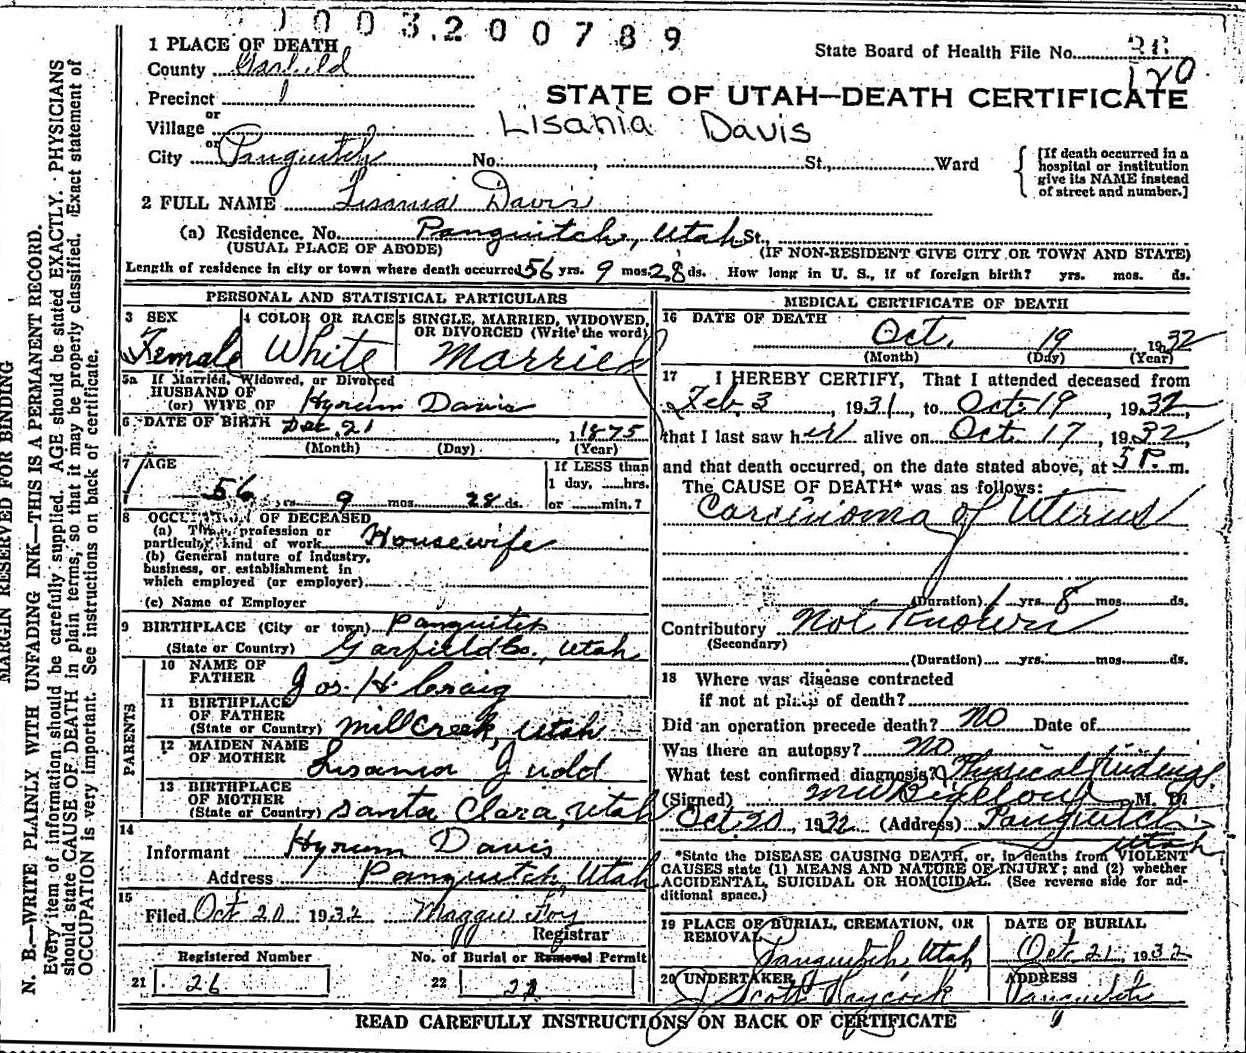 1003200789
1 PLACE OF DEATH
State Board of Health File No. 36
120
County Garfield
Precinct 1
or
STATE OF UTAH—DEATH CERTIFICATE
Village
Lisania Davis
or
City Panguitch No. , St., Ward
[If death occurred in a
hospital or institution
give its NAME instead
of street and number.]
2 FULL NAME Lisania Davis
(a) Residence. No. Panguitch, Utah St.,
(USUAL PLACE OF ABODE) (IF NON-RESIDENT GIVE CITY OR TOWN AND STATE)
Length of residence in city or town where death occurred 56 yrs. 9 mos. 28 ds. How long in U. S., if of foreign birth? yrs. mos. ds.
PERSONAL AND STATISTICAL PARTICULARS
3 SEX
Female
4 COLOR OR RACE
White
5 SINGLE, MARRIED, WIDOWED,
OR DIVORCED (Write the word)
Married
5a If Married, Widowed, or Divorced
HUSBAND OF
(or) WIFE OF Hyrum Davis
6 DATE OF BIRTH Dec. 21, 1 1875
(Month) (Day) (Year)
7 AGE
56 yrs. 9 mos. 28 ds.
If LESS than
1 day, hrs.
or min.?
8 OCCUPATION OF DECEASED
(a) Trade, profession or
particular kind of work Housewife
(b) General nature of industry,
business, or establishment in
which employed (or employer)
(c) Name of Employer
9 BIRTHPLACE (City or town) Panguitch
(State or Country) Garfield Co., Utah
PARENTS
10 NAME OF
FATHER Jos. H. Craig
11 BIRTHPLACE
OF FATHER
(State or Country) Mill Creek, Utah
12 MAIDEN NAME
OF MOTHER Lisania Judd
13 BIRTHPLACE
OF MOTHER
(State or Country) Santa Clara, Utah
14
Informant Hyrum Davis
Address Panguitch Utah
15
Filed Oct 20 1932 Maggie Foy
Registrar
Registered Number
21 26
No. of Burial or Removal Permit
22 22
MEDICAL CERTIFICATE OF DEATH
16 DATE OF DEATH
Oct. 19 1932
(Month) (Day) (Year)
17 I HEREBY CERTIFY, That I attended deceased from
Feb 3, 1931, to Oct. 19, 1932,
that I last saw her alive on Oct. 17, 1932,
and that death occurred, on the date stated above, at 5 P. m.
The CAUSE OF DEATH* was as follows:
Carcinoma of Uterus
(Duration) 1 yrs. 8 mos. ds.
Contributory Not Known
(Secondary)
(Duration) yrs. mos. ds.
18 Where was disease contracted
if not at place of death?
Did an operation precede death? NO Date of
Was there an autopsy? NO
What test confirmed diagnosis? Physical findings
(Signed) MW Bigelow, M. D.
Oct 20, 1932 (Address) Panguitch
Utah
*State the DISEASE CAUSING DEATH, or, in deaths from VIOLENT
CAUSES state (1) MEANS AND NATURE OF INJURY; and (2) whether
ACCIDENTAL, SUICIDAL OR HOMICIDAL. (See reverse side for ad-
ditional space.)
19 PLACE OF BURIAL, CREMATION, OR
REMOVAL
Panguitch, Utah
DATE OF BURIAL
Oct. 21, 1932
20 UNDERTAKER
J Scott Haycock
ADDRESS
Panguitch
READ CAREFULLY INSTRUCTIONS ON BACK OF CERTIFICATE
MARGIN RESERVED FOR BINDING
N. B.—WRITE PLAINLY WITH UNFADING INK—THIS IS A PERMANENT RECORD.
Every item of information should be carefully supplied. AGE should be stated EXACTLY. PHYSICIANS
should state CAUSE OF DEATH in plain terms, so that it may be properly classified. Exact statement of
OCCUPATION is very important. See instructions on back of certificate.